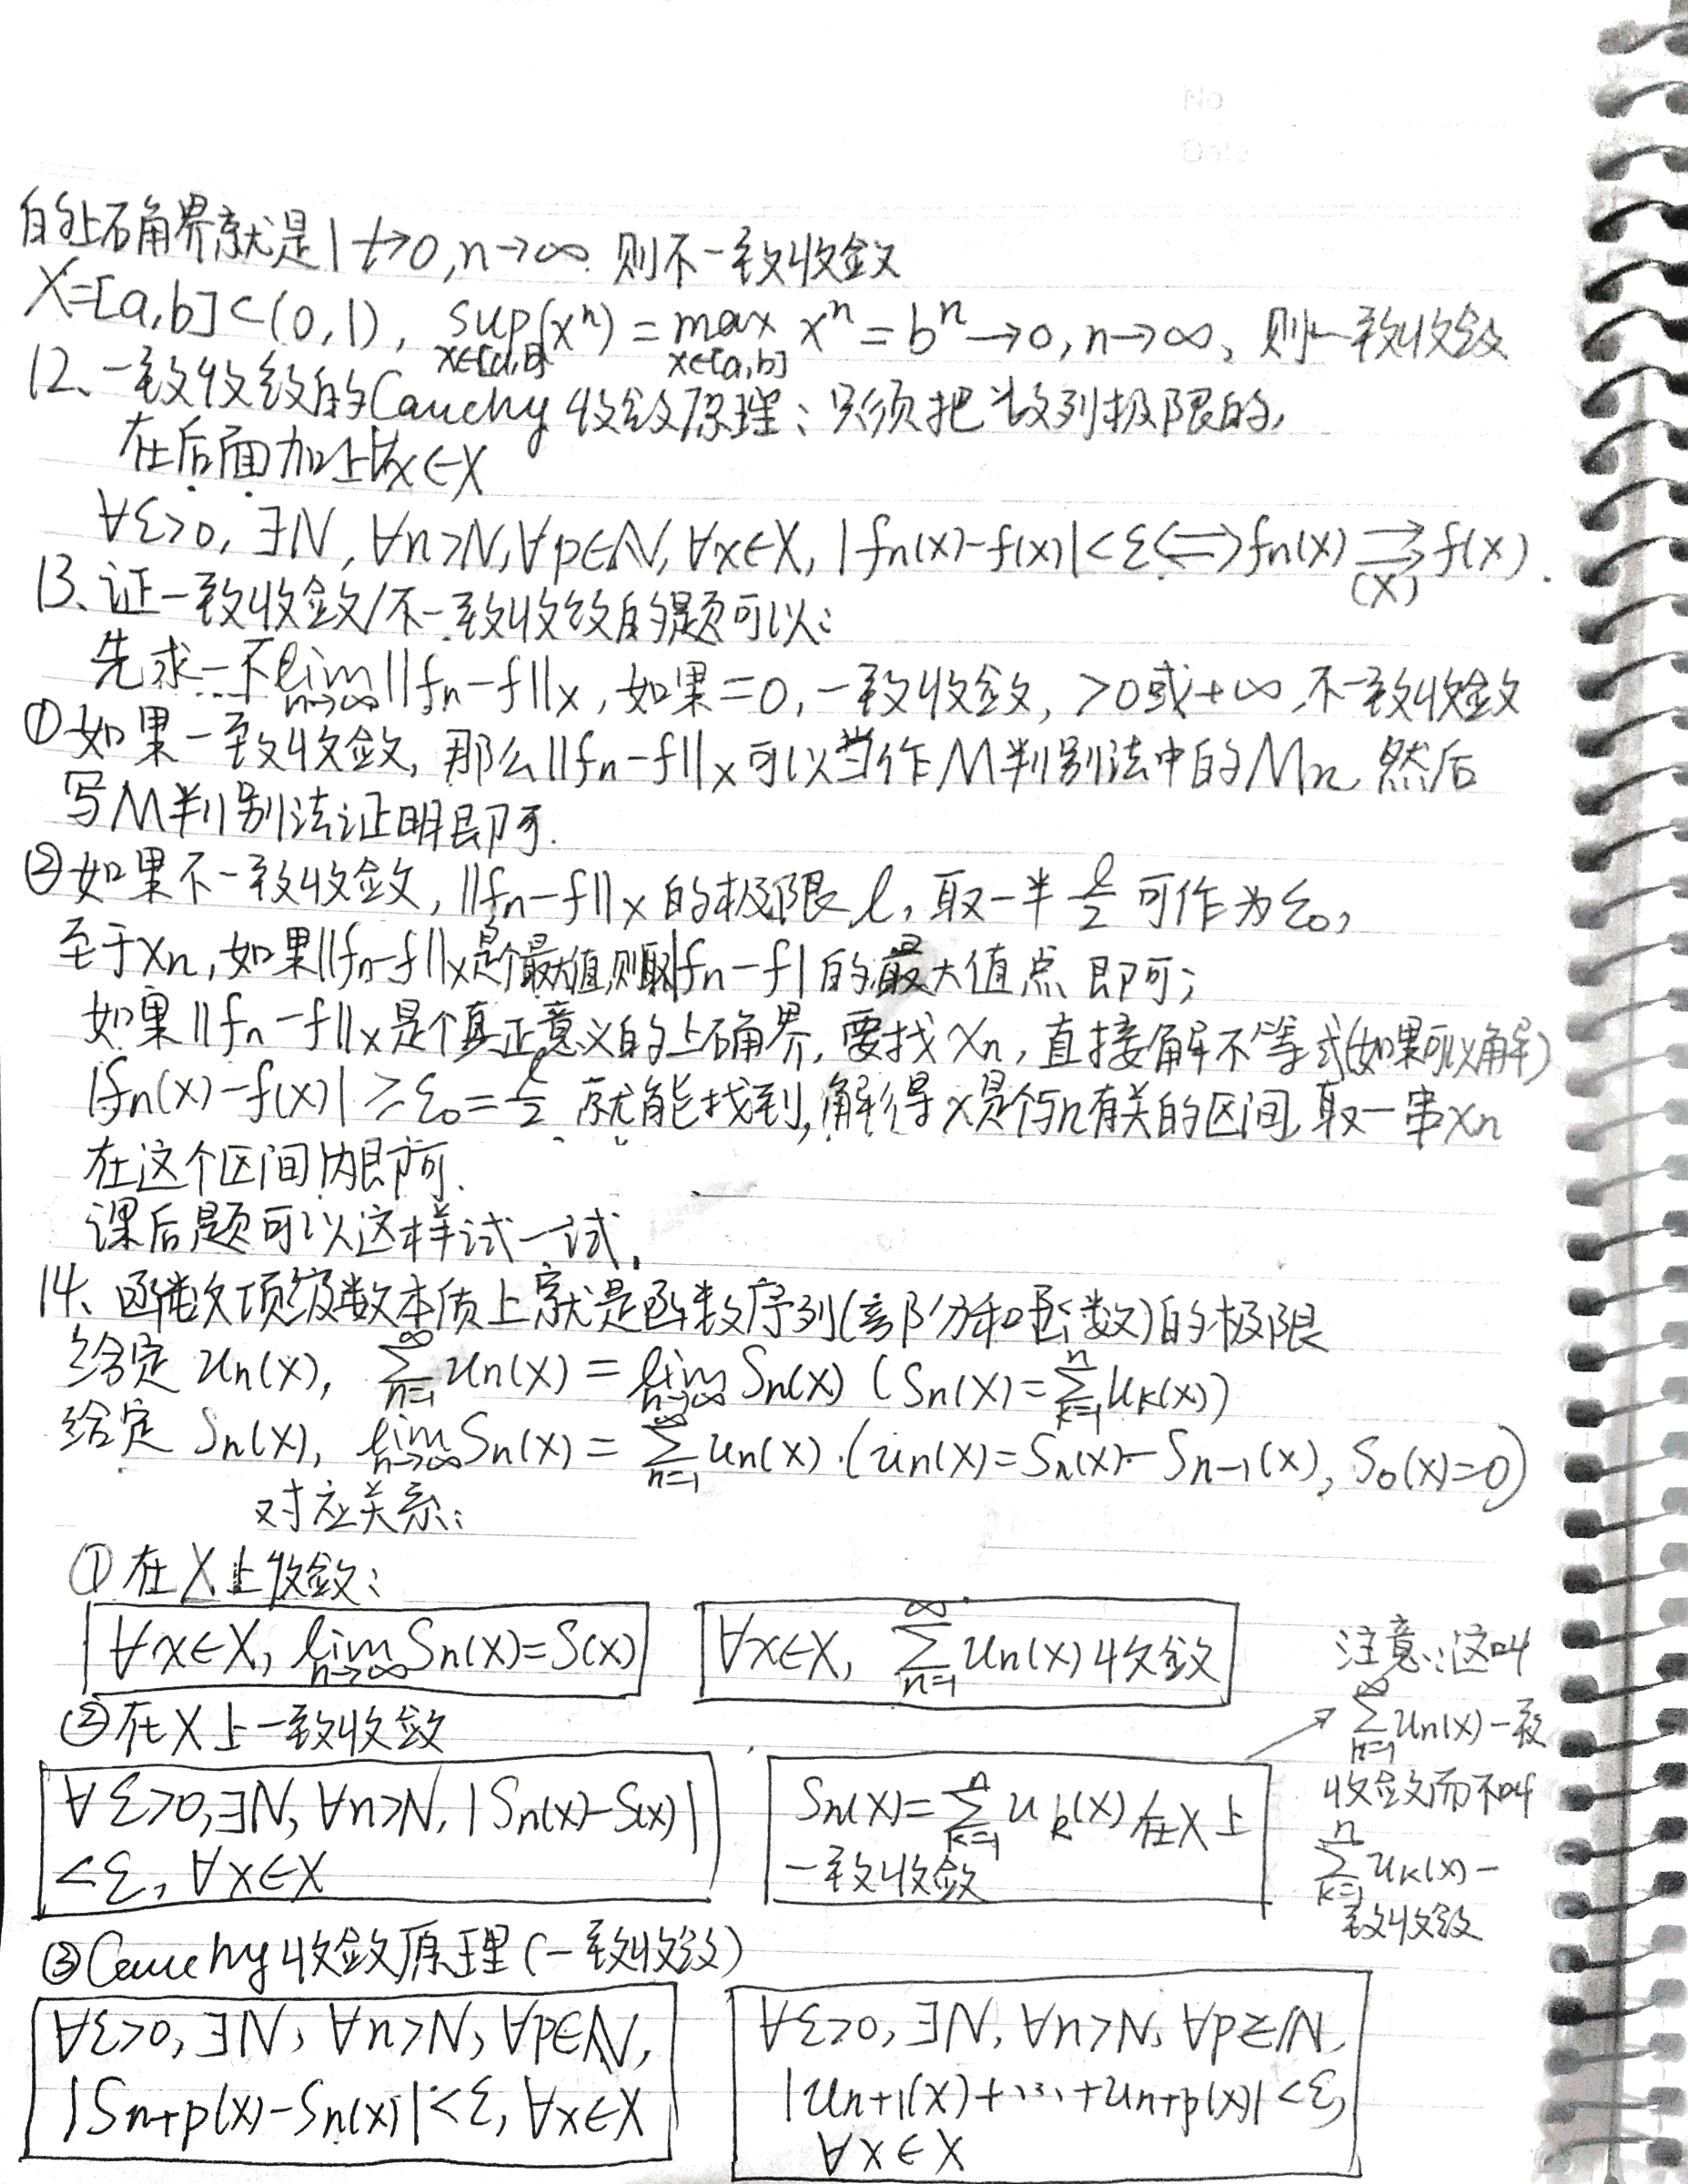 的上确界就是1↛0,n→∞.则不一致收敛
X=[a,b]⊂(0,1), sup_{x∈[a,b]}(xⁿ)=max_{x∈[a,b]} xⁿ=bⁿ→0,n→∞, 则一致收敛
12、一致收敛的Cauchy收敛原理:只须把数列极限的,
在后面加上∀x∈X
∀ε>0, ∃N, ∀n>N,∀p∈N, ∀x∈X, |fn(x)-f(x)|<ε⟺fn(x)⇉(X) f(x).
13、证一致收敛/不一致收敛的题可以:
先求一下lim_{n→∞}||fn-f||x, 如果=0, 一致收敛, >0或+∞,不一致收敛
①如果一致收敛, 那么||fn-f||x可以当作M判别法中的Mn,然后
写M判别法证明即可.
②如果不一致收敛, ||fn-f||x的极限l, 取一半l/2可作为ε₀,
至于xn,如果||fn-f||x是个最大值,则取|fn-f|的最大值点即可;
如果||fn-f||x是个真正意义的上确界, 要找xn, 直接解不等式(如果可以解)
|fn(x)-f(x)|≥ε₀=l/2 就能找到,解得x是个与n有关的区间,取一串xn
在这个区间内即可.
课后题可以这样试一试.
14、函数项级数本质上就是函数序列(部分和函数)的极限
给定un(x), ∑_{n=1}^{∞}un(x)=lim_{n→∞}Sn(x) (Sn(x)=∑_{k=1}^{n}uk(x))
给定Sn(x), lim_{n→∞}Sn(x)=∑_{n=1}^{∞}un(x).(un(x)=Sn(x)-Sn-1(x), S₀(x)=0)
对应关系:
①在X上收敛:
∀x∈X, lim_{n→∞}Sn(x)=S(x)
∀x∈X, ∑_{n=1}^{∞}un(x)收敛
②在X上一致收敛
∀ε>0,∃N, ∀n>N, |Sn(x)-S(x)|
<ε, ∀x∈X
Sn(x)=∑_{k=1}^{n}uk(x)在X上
一致收敛
注意:这叫
∑_{n=1}^{∞}un(x)一致
收敛而不叫
∑_{k=1}^{n}uk(x)一
致收敛
③Cauchy收敛原理(一致收敛)
∀ε>0, ∃N, ∀n>N, ∀p∈N,
|Sn+p(x)-Sn(x)|<ε, ∀x∈X
∀ε>0, ∃N, ∀n>N, ∀p∈N,
|un+1(x)+...+un+p(x)|<ε,
∀x∈X